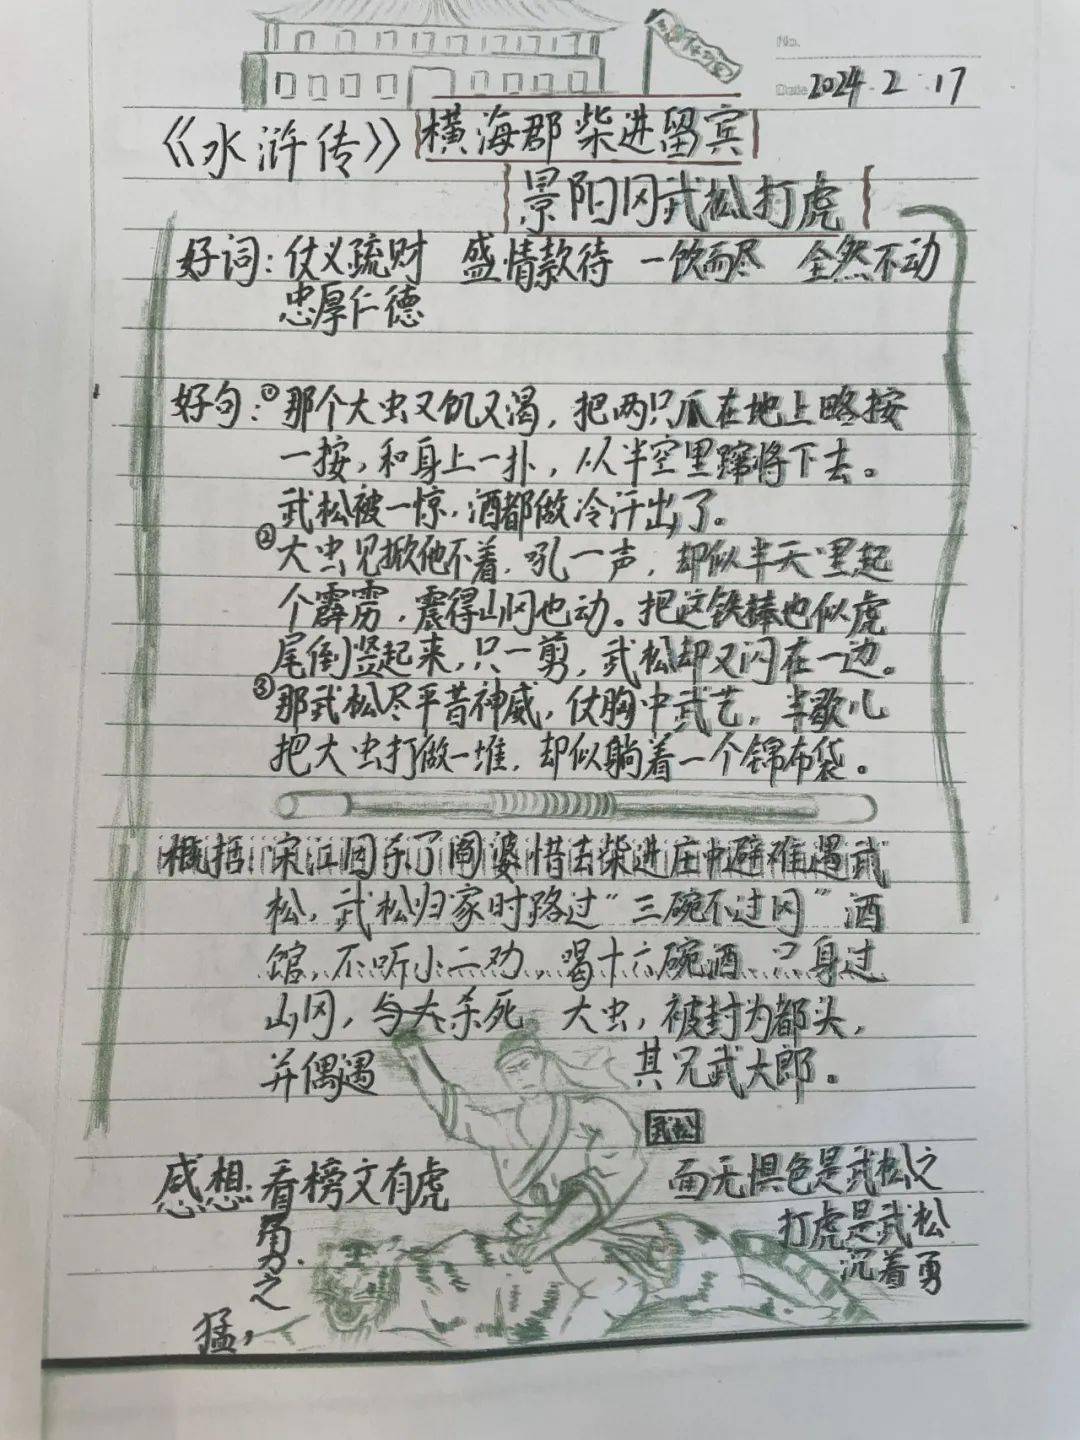 No.
Date 2024.2.17
《水浒传》横海郡柴进留宾
景阳冈武松打虎
好词：仗义疏财 盛情款待 一饮而尽 全然不动
忠厚仁德
好句：①那个大虫又饥又渴，把两只爪在地上略按
一按，和身上一扑，从半空里蹿将下去。
武松被一惊，酒都做冷汗出了。
②大虫见掀他不着，吼一声，却似半天里起
个霹雳，震得山冈也动。把这铁棒也似虎
尾倒竖起来，只一剪，武松却又闪在一边。
③那武松尽平昔神威，仗胸中武艺，半歇儿
把大虫打做一堆，却似躺着一个锦布袋。
概括：宋江因杀了阎婆惜去柴进庄中避难遇武
松，武松归家时路过“三碗不过冈”酒
馆，不听小二劝，喝十六碗酒 只身过
山冈，与大杀死 大虫，被封为都头，
并偶遇 其兄武大郎。
武松
感想：看榜文有虎 面无惧色是武松之
勇 打虎是武松
力之 沉着勇
猛，